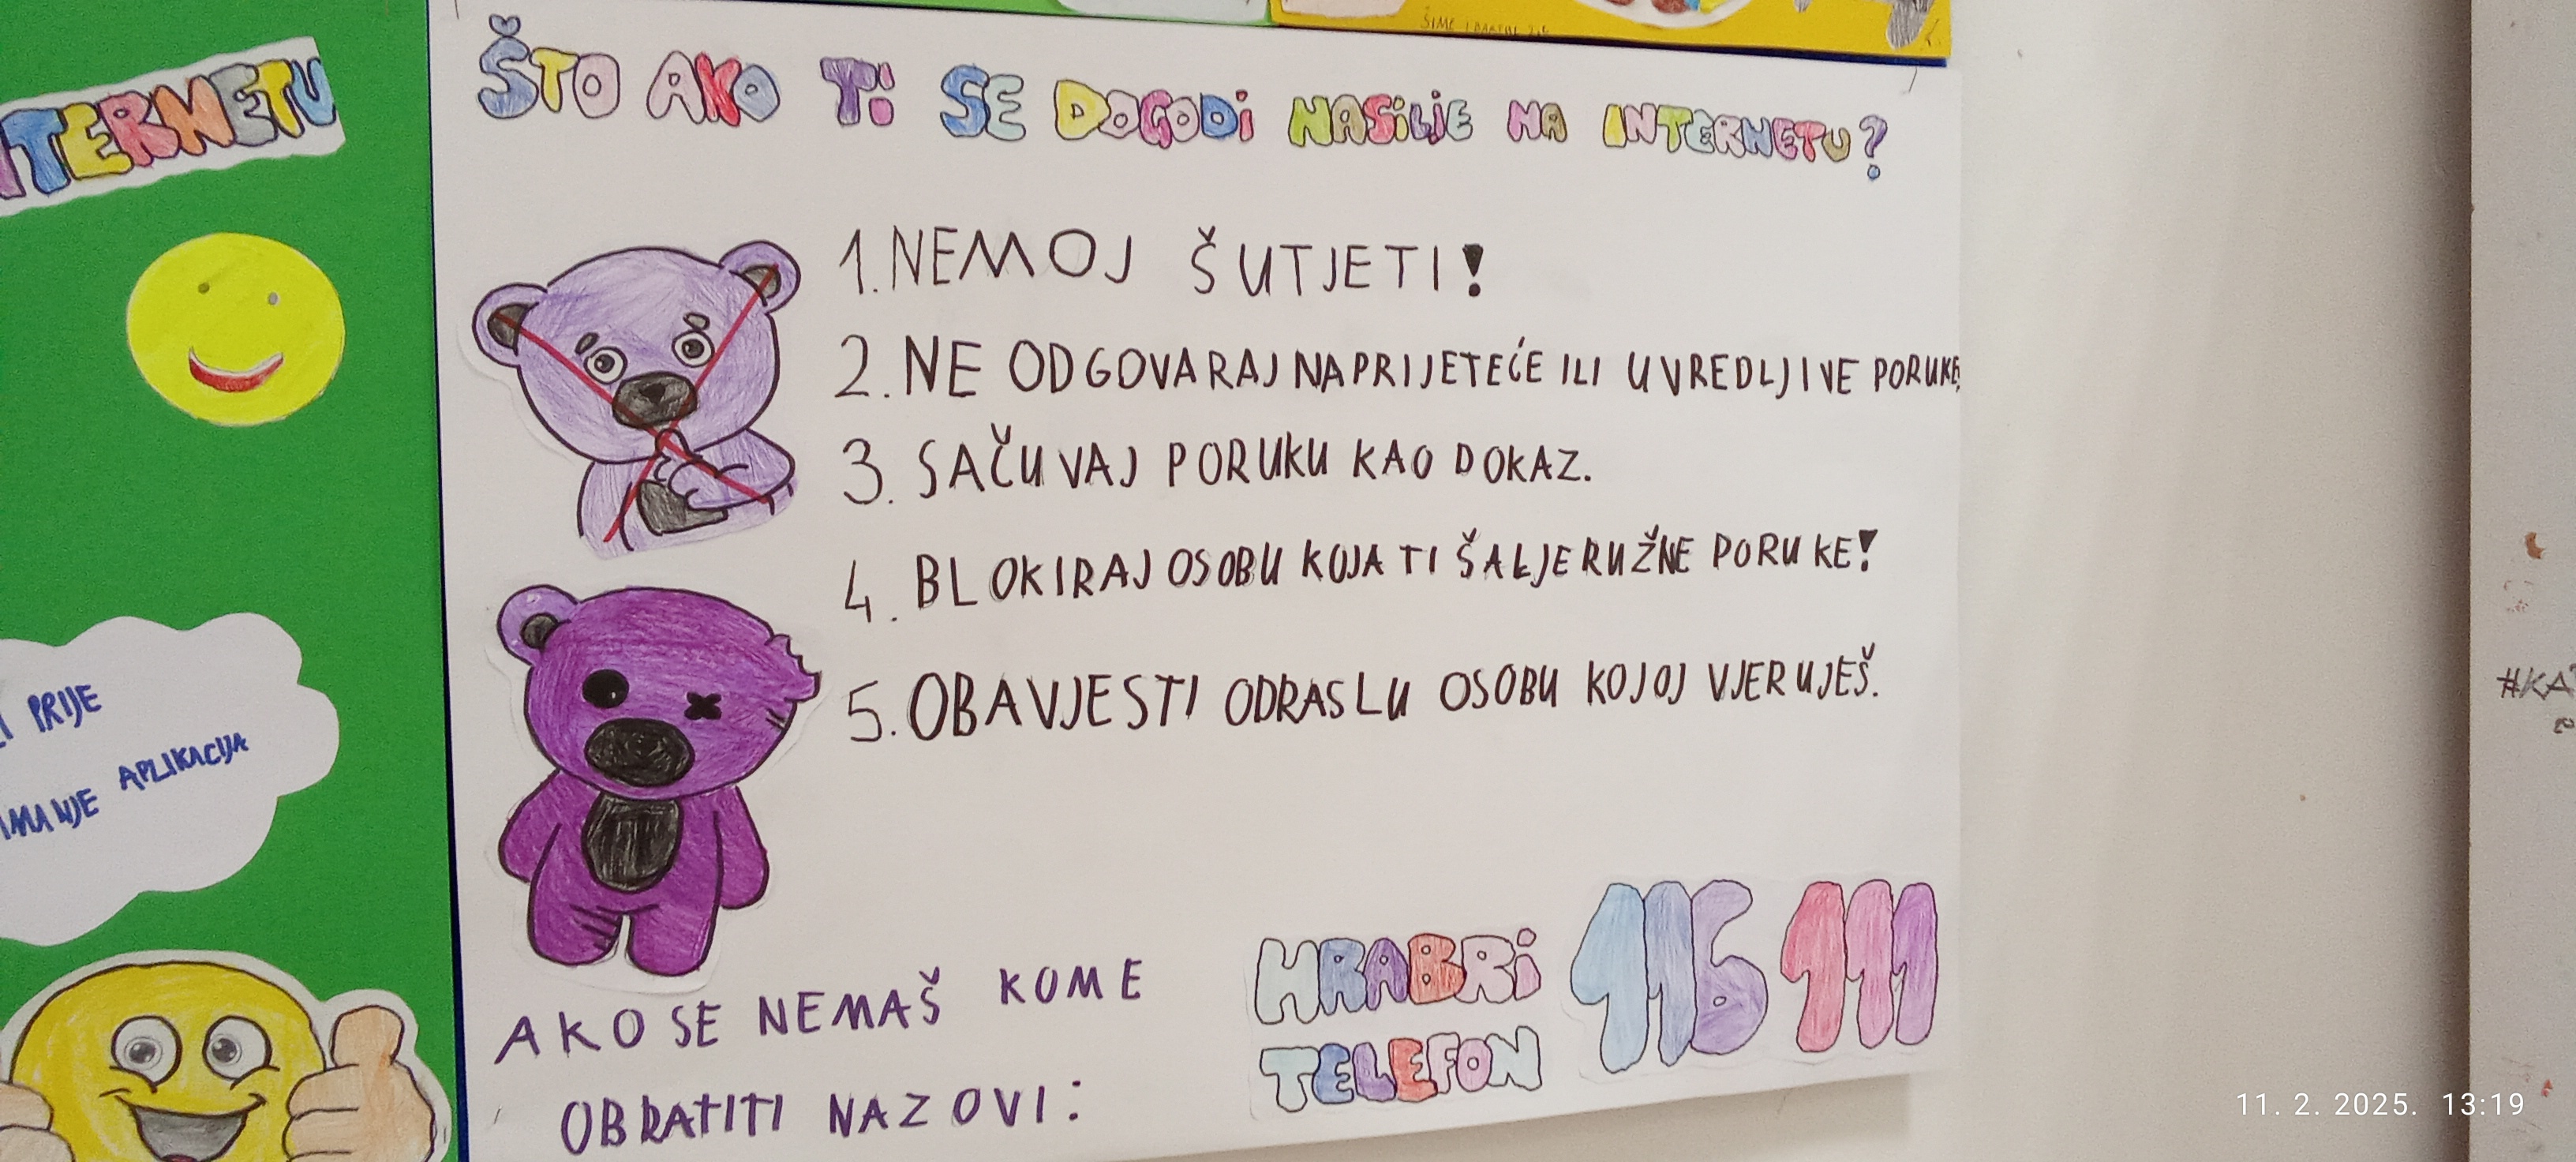 TERNETU
PRIJE
APLIKACIJA
ŠTO AKO Ti SE DOGODi NASiLJE NA INTERNETU?
1. NEMOJ ŠUTJETI!
2. NE ODGOVARAJ NA PRIJETEĆE ILI UVREDLJIVE PORUKE
3. SAČUVAJ PORUKU KAO DOKAZ.
4. BLOKIRAJ OSOBU KOJA TI ŠALJE RUŽNE PORUKE!
5. OBAVJESTI ODRASLU OSOBU KOJOJ VJERUJEŠ.
AKO SE NEMAŠ KOME
OBRATITI NAZOVI:
HRABRi
TELEFON
116 111
#KA
11. 2. 2025. 13:19